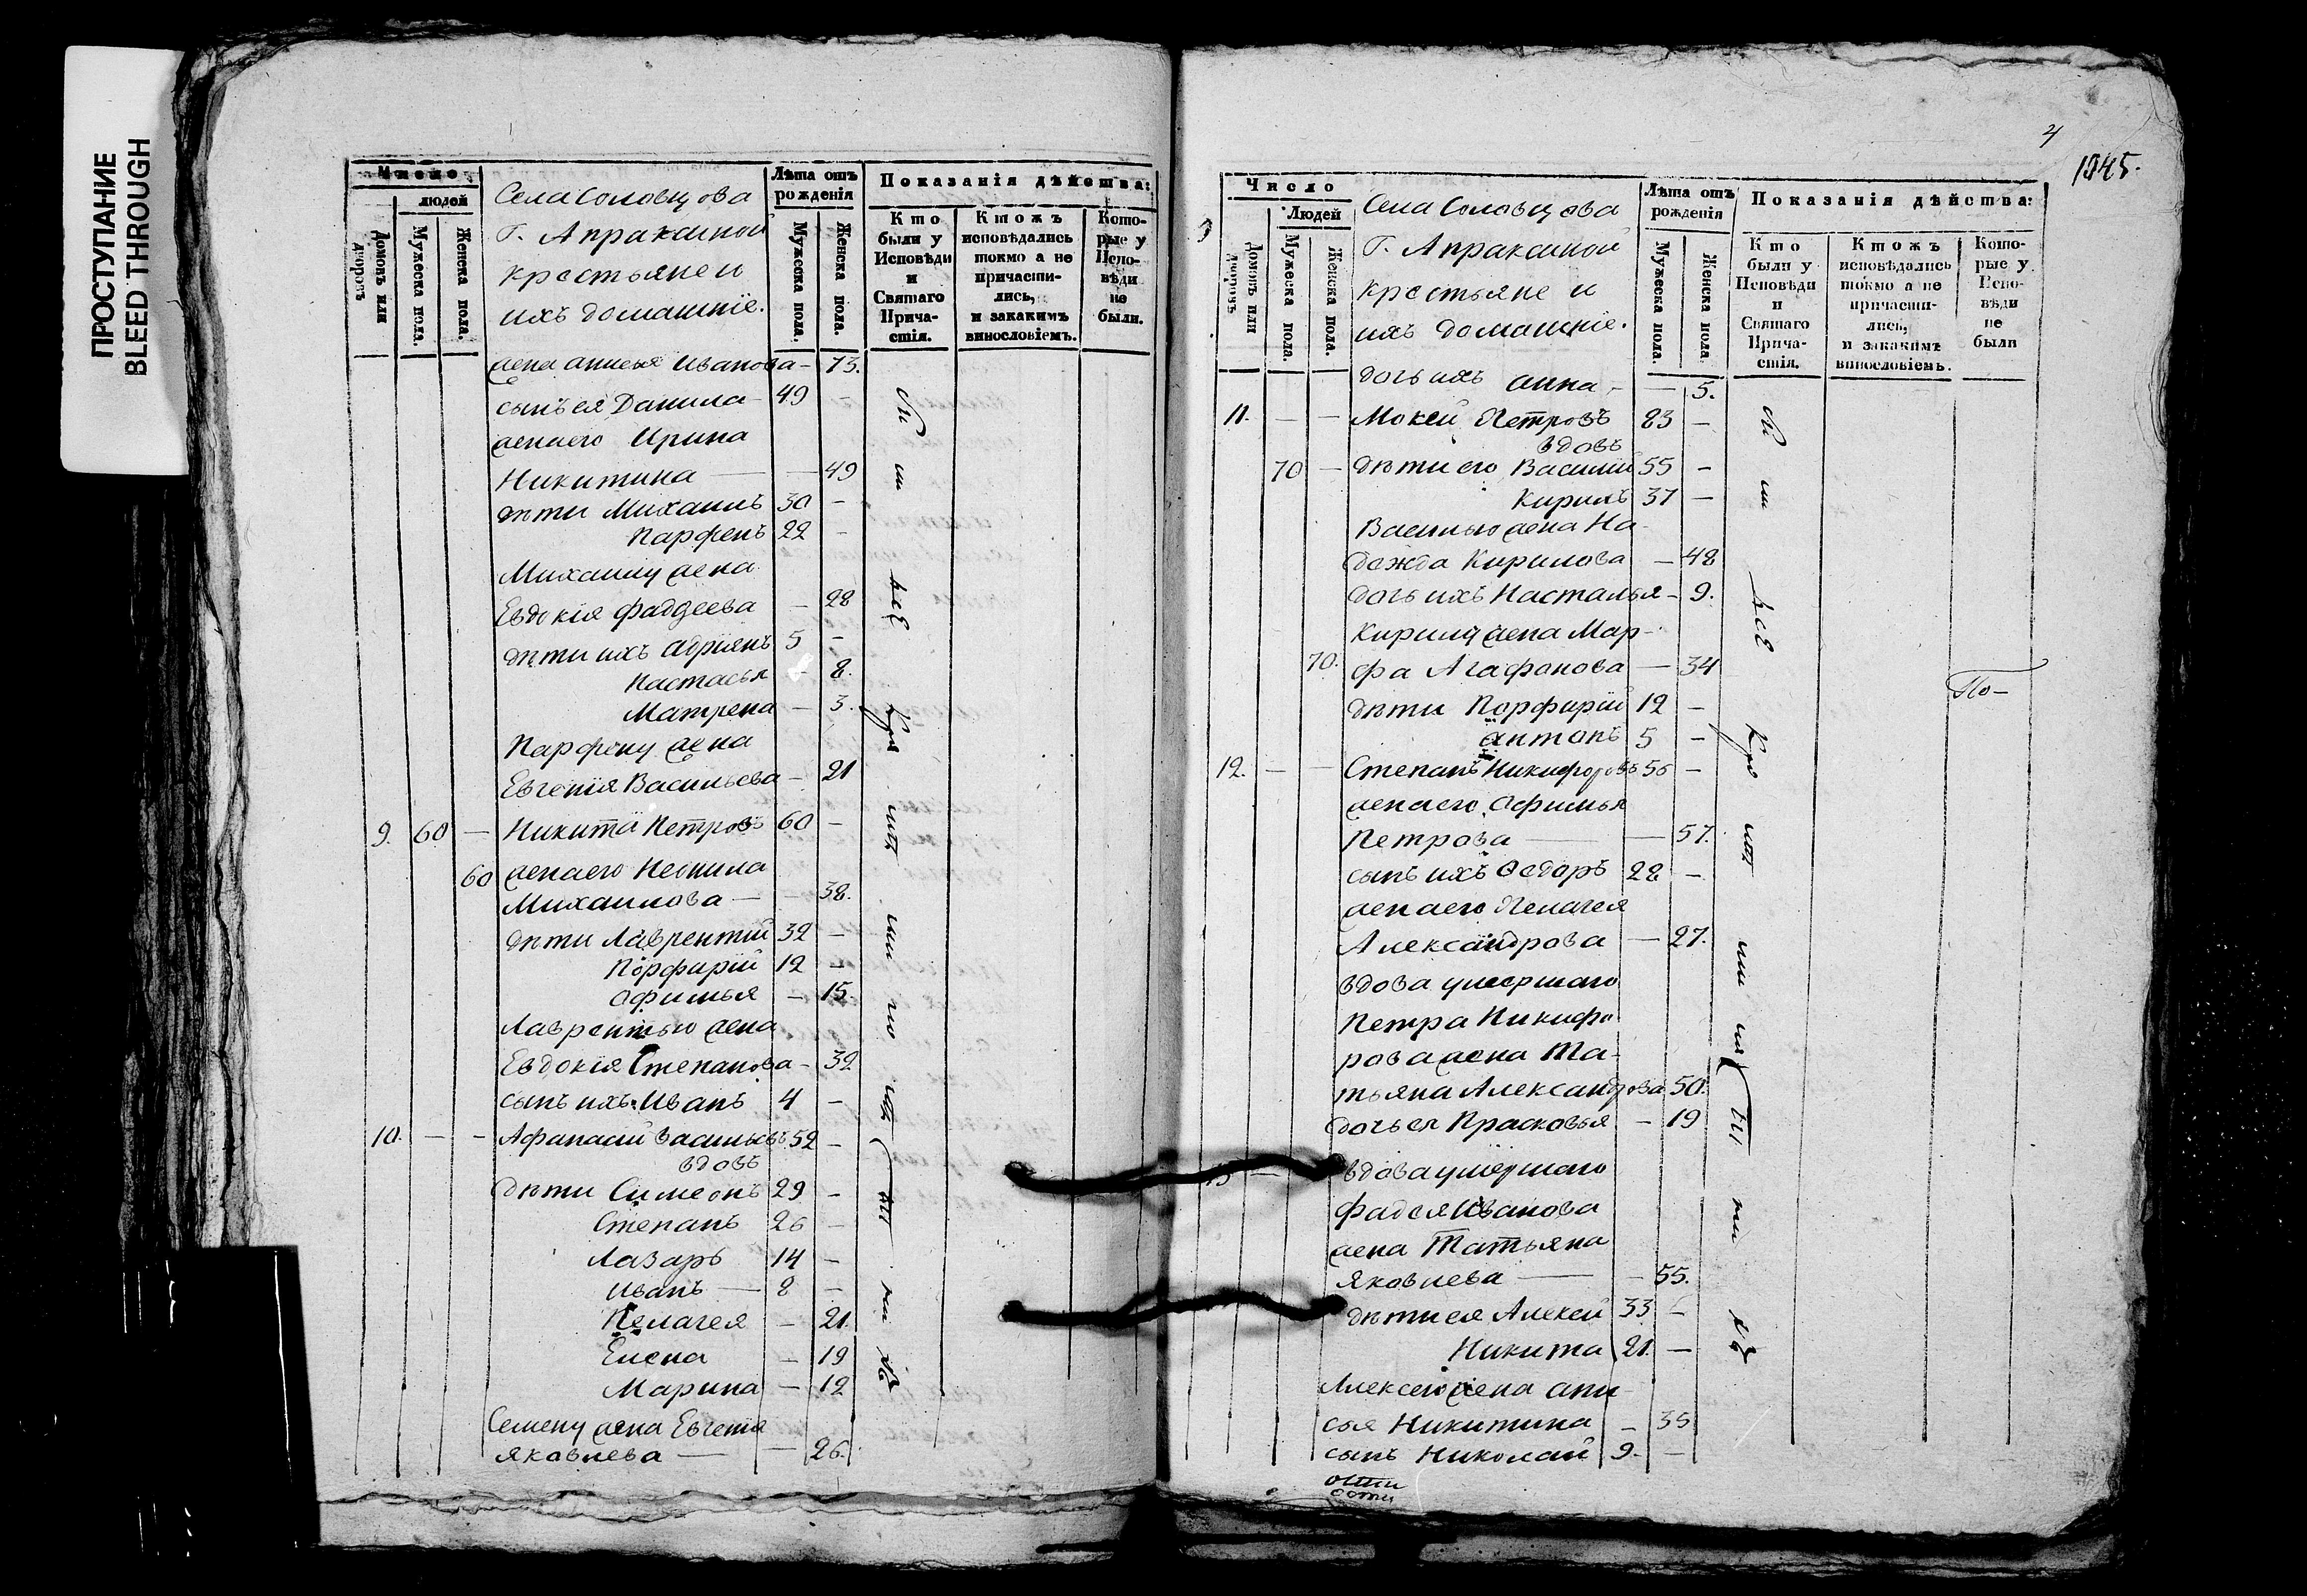 ПРОСТУПАНИЕ
BLEED THROUGH
Число
людей
Домовъ или дворовъ
Мужеска пола.
Женска пола.
Села Соловцова
Г. Апраксиной
крестьяне и
ихъ домашніе.
Лѣта отъ рожденія
Мужеска пола.
Женска пола.
Показанія дѣйства:
Кто были у Исповѣди и Святаго Прича-стія.
Ктожъ исповѣдались токмо а не причасти-лись, и закакимъ винословіемъ.
Кото-рые у Испо-вѣди не были.
жена Анисья Иванова - 73.
сынъ ея Данила - 49 -
жена его Ирина
Никитина - - 49
дѣти Михаилъ 30 -
Парфенъ 22 -
Михаилу жена
Евдокія Фаддеева - 28
дѣти ихъ Адріянъ 5 -
Настасья - 8.
Матрена - 3.
Парфену жена
Евгенія Васильева - 21
9. 60 - Никита Петровъ 60 -
60 жена его Неонила
Михаилова - - 38.
дѣти Лаврентій 32 -
Порфирій 12 -
Афимья - 15.
Лаврентью жена
Евдокія Степанова - 32
сынъ ихъ Иванъ 4 -
10. - - Афанасій Васильевъ 52 -
вдовъ
дѣти Симеонъ 29 -
Степанъ 26 -
Лазарь 14 -
Иванъ - 8 -
Пелагея - 21.
Елена - 19
Марина - 12
Семену жена Евгенія
Яковлева - - 26.
4
1945.
Число
Людей
Домовъ или дворовъ
Мужеска пола.
Женска пола.
Села Соловцова
Г. Апраксиной
крестьяне и
ихъ домашніе.
Лѣта отъ рожденія
Мужеска пола.
Женска пола.
Показанія дѣйства:
Кто были у Исповѣди и Святаго Прича-стія.
Ктожъ исповѣдались токмо а не причасти-лись, и закакимъ винословіемъ.
Кото-рые у Испо-вѣди не были
дочь ихъ Анна - - 5.
11. - - Мокей Петровъ 83 -
вдовъ
70 - дѣти его Василій 55 -
Кирилъ 37 -
Василью жена На-
дежда Кирилова - 48
дочь ихъ Насталья - 9.
Кирилу жена Мар-
70. фа Агафонова - 34
По-
дѣти Порфирій 12 -
Антонъ 5 -
12. - - Степанъ Никифоровъ 55 -
жена его Афимья
Петрова - - 57.
сынъ ихъ Федоръ 28 -
жена его Пелагея
Александрова - 27.
вдова умершаго
Петра Никифо-
рова жена Та-
тьяна Александрова 50.
дочь ея Прасковья - 19
13 - вдова умершаго
Фадея Иванова
жена Татьяна
Яковлева - - 55.
дѣти ея Алексей 33 -
Никита 21. -
Алексею жена Ани-
сья Никитина - 35
сынъ Николай 9. -